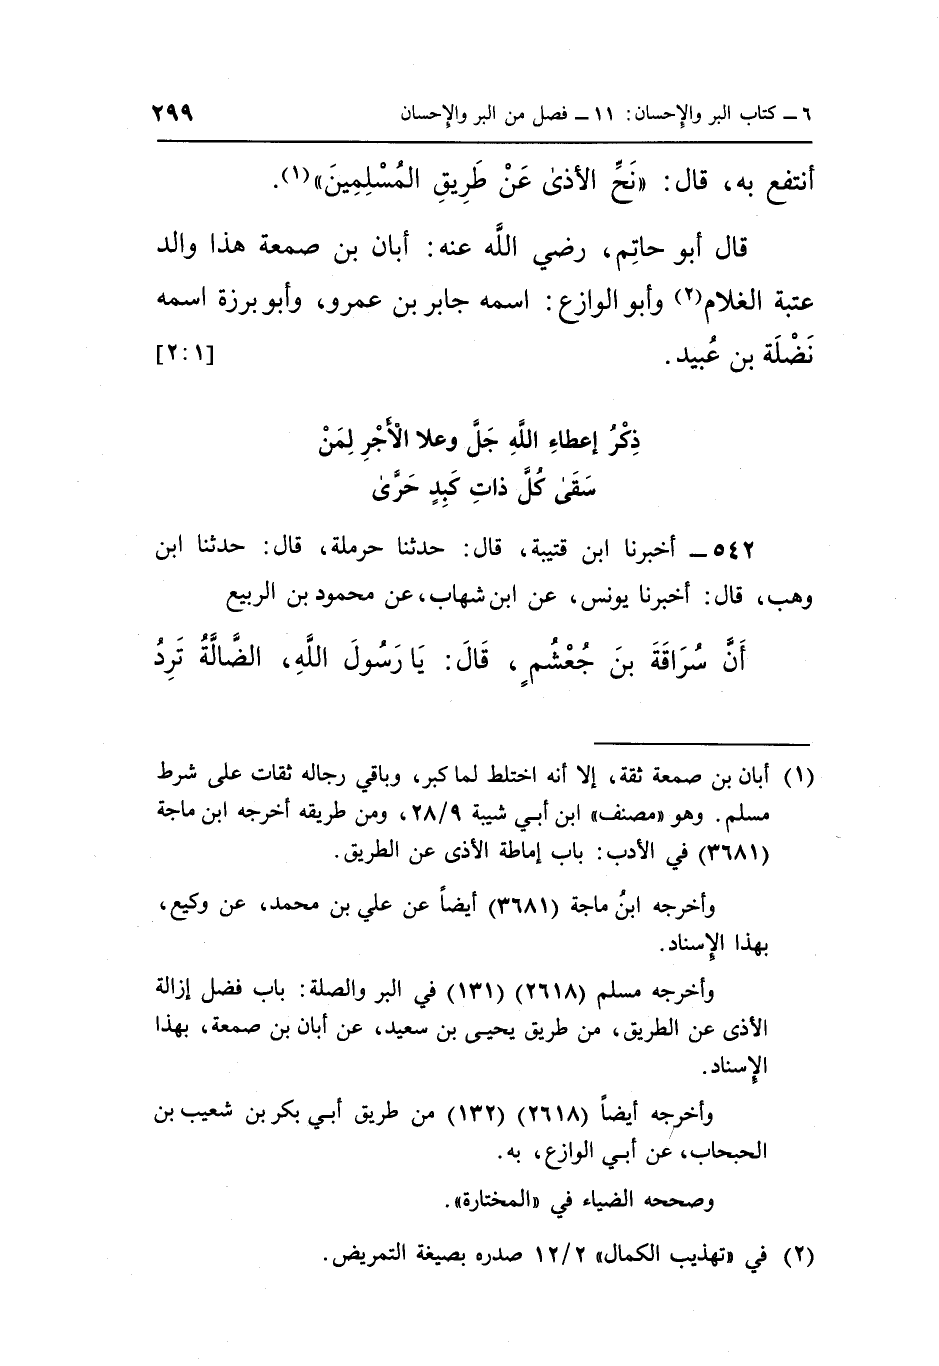 ٦ ــ كتاب البر والإحسان: ١١ ــ فصل من البر والإحسان ٢٩٩
أنتفع به، قال: «نَحِّ الأذىٰ عَنْ طَرِيقِ المُسْلِمِينَ»(١).
قال أبو حاتِم، رضي اللَّه عنه: أبان بن صمعة هذا والد
عتبة الغلام(٢) وأبو الوازع: اسمه جابر بن عمرو، وأبو برزة اسمه
نَضْلَة بن عُبيد. [١:٢]
ذِكْرُ إعطاءِ اللَّهِ جَلَّ وعلا الأَجْرِ لِمَنْ
سَقَىٰ كُلَّ ذاتِ كَبِدٍ حَرَّىٰ
٥٤٢ ــ أخبرنا ابن قتيبة، قال: حدثنا حرملة، قال: حدثنا ابن
وهب، قال: أخبرنا يونس، عن ابن شهاب، عن محمود بن الربيع
أَنَّ سُرَاقَةَ بنَ جُعْشُمٍ، قَالَ: يَا رَسُولَ اللَّهِ، الضَّالَّةُ تَرِدُ
(١) أبان بن صمعة ثقة، إلا أنه اختلط لما كبر، وباقي رجاله ثقات على شرط
مسلم. وهو «مصنف» ابن أبي شيبة ٢٨/٩، ومن طريقه أخرجه ابن ماجة
(٣٦٨١) في الأدب: باب إماطة الأذى عن الطريق.
وأخرجه ابنُ ماجة (٣٦٨١) أيضاً عن علي بن محمد، عن وكيع،
بهذا الإسناد.
وأخرجه مسلم (٢٦١٨) (١٣١) في البر والصلة: باب فضل إزالة
الأذى عن الطريق، من طريق يحيى بن سعيد، عن أبان بن صمعة، بهذا
الإسناد.
وأخرجه أيضاً (٢٦١٨) (١٣٢) من طريق أبي بكر بن شعيب بن
الحبحاب، عن أبي الوازع، به.
وصححه الضياء في «المختارة».
(٢) في «تهذيب الكمال» ١٢/٢ صدره بصيغة التمريض.